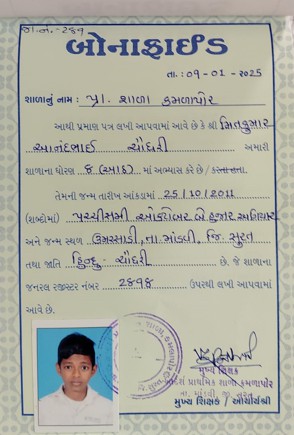 જી.નં.-2891
બોનાફાઈડ
તા.: 09-01-2025
શાળાનું નામ : પ્રા. શાળા કમળાપોર
આથી પ્રમાણ પત્ર લખી આપવામાં આવે છે કે શ્રી મિતકુમાર
આનંદભાઈ ચૌધરી અમારી
શાળાના ધોરણ 8 (આઠ) માં અભ્યાસ કરે છે / કરતા હતા.
તેમની જન્મ તારીખ આંકડામાં 25/10/2011
(શબ્દોમાં) પચ્ચીસમી ઓક્ટોબર બે હજાર અગિયાર
અને જન્મ સ્થળ ઉમરસાડી, તા. માંડવી, જિ. સુરત
તથા જાતિ હિન્દુ - ચૌધરી છે. જે શાળાના
જનરલ રજીસ્ટર નંબર 2898 ઉપરથી લખી આપવામાં
આવે છે.
મુખ્ય શિક્ષક
પ્રાથમિક શાળા કમળાપોર
તા. માંડવી, જી. સુરત
મુખ્ય શિક્ષક / આચાર્યશ્રી